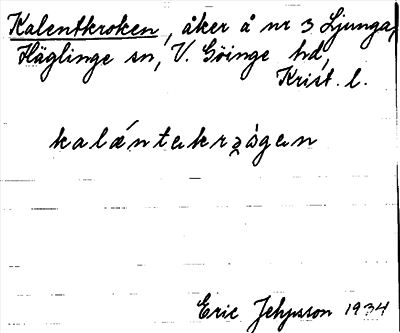 Kalentkroken, åker å nr 3 Ljunga,
Häglinge sn, V. Göinge hd,
Krist. l.
Eric 1934